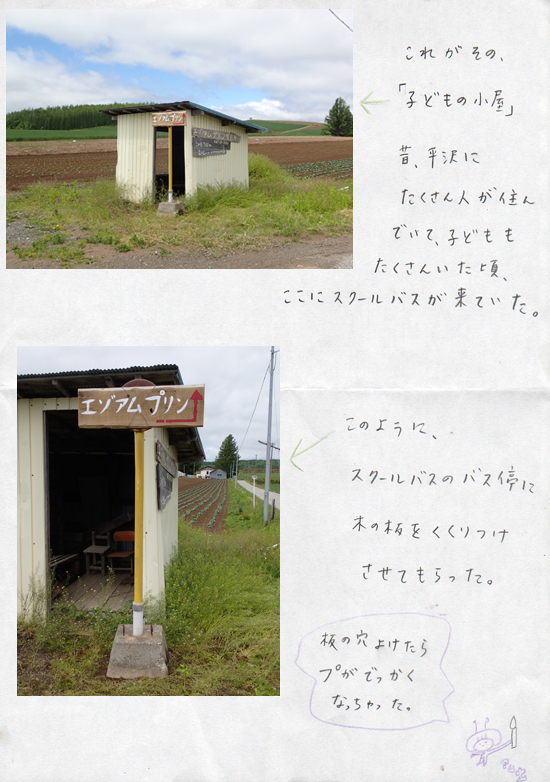 これがその、
「子どもの小屋」
昔、平沢に
たくさん人が住ん
でいて、子どもも
たくさんいた頃、
ここにスクールバスが来ていた。
エゾアムプリン
エゾアムプリン
このように、
スクールバスのバス停に
木の板をくくりつけ
させてもらった。
板の穴よけたら
プがでっかく
なっちゃった。